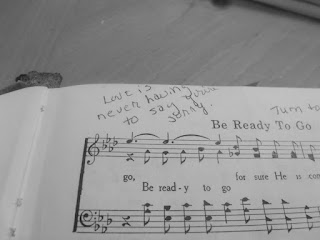 Love is
never having
to say you're
sorry!
Turn to
Be Ready To Go
go, for sure He is com
Be read-y to go